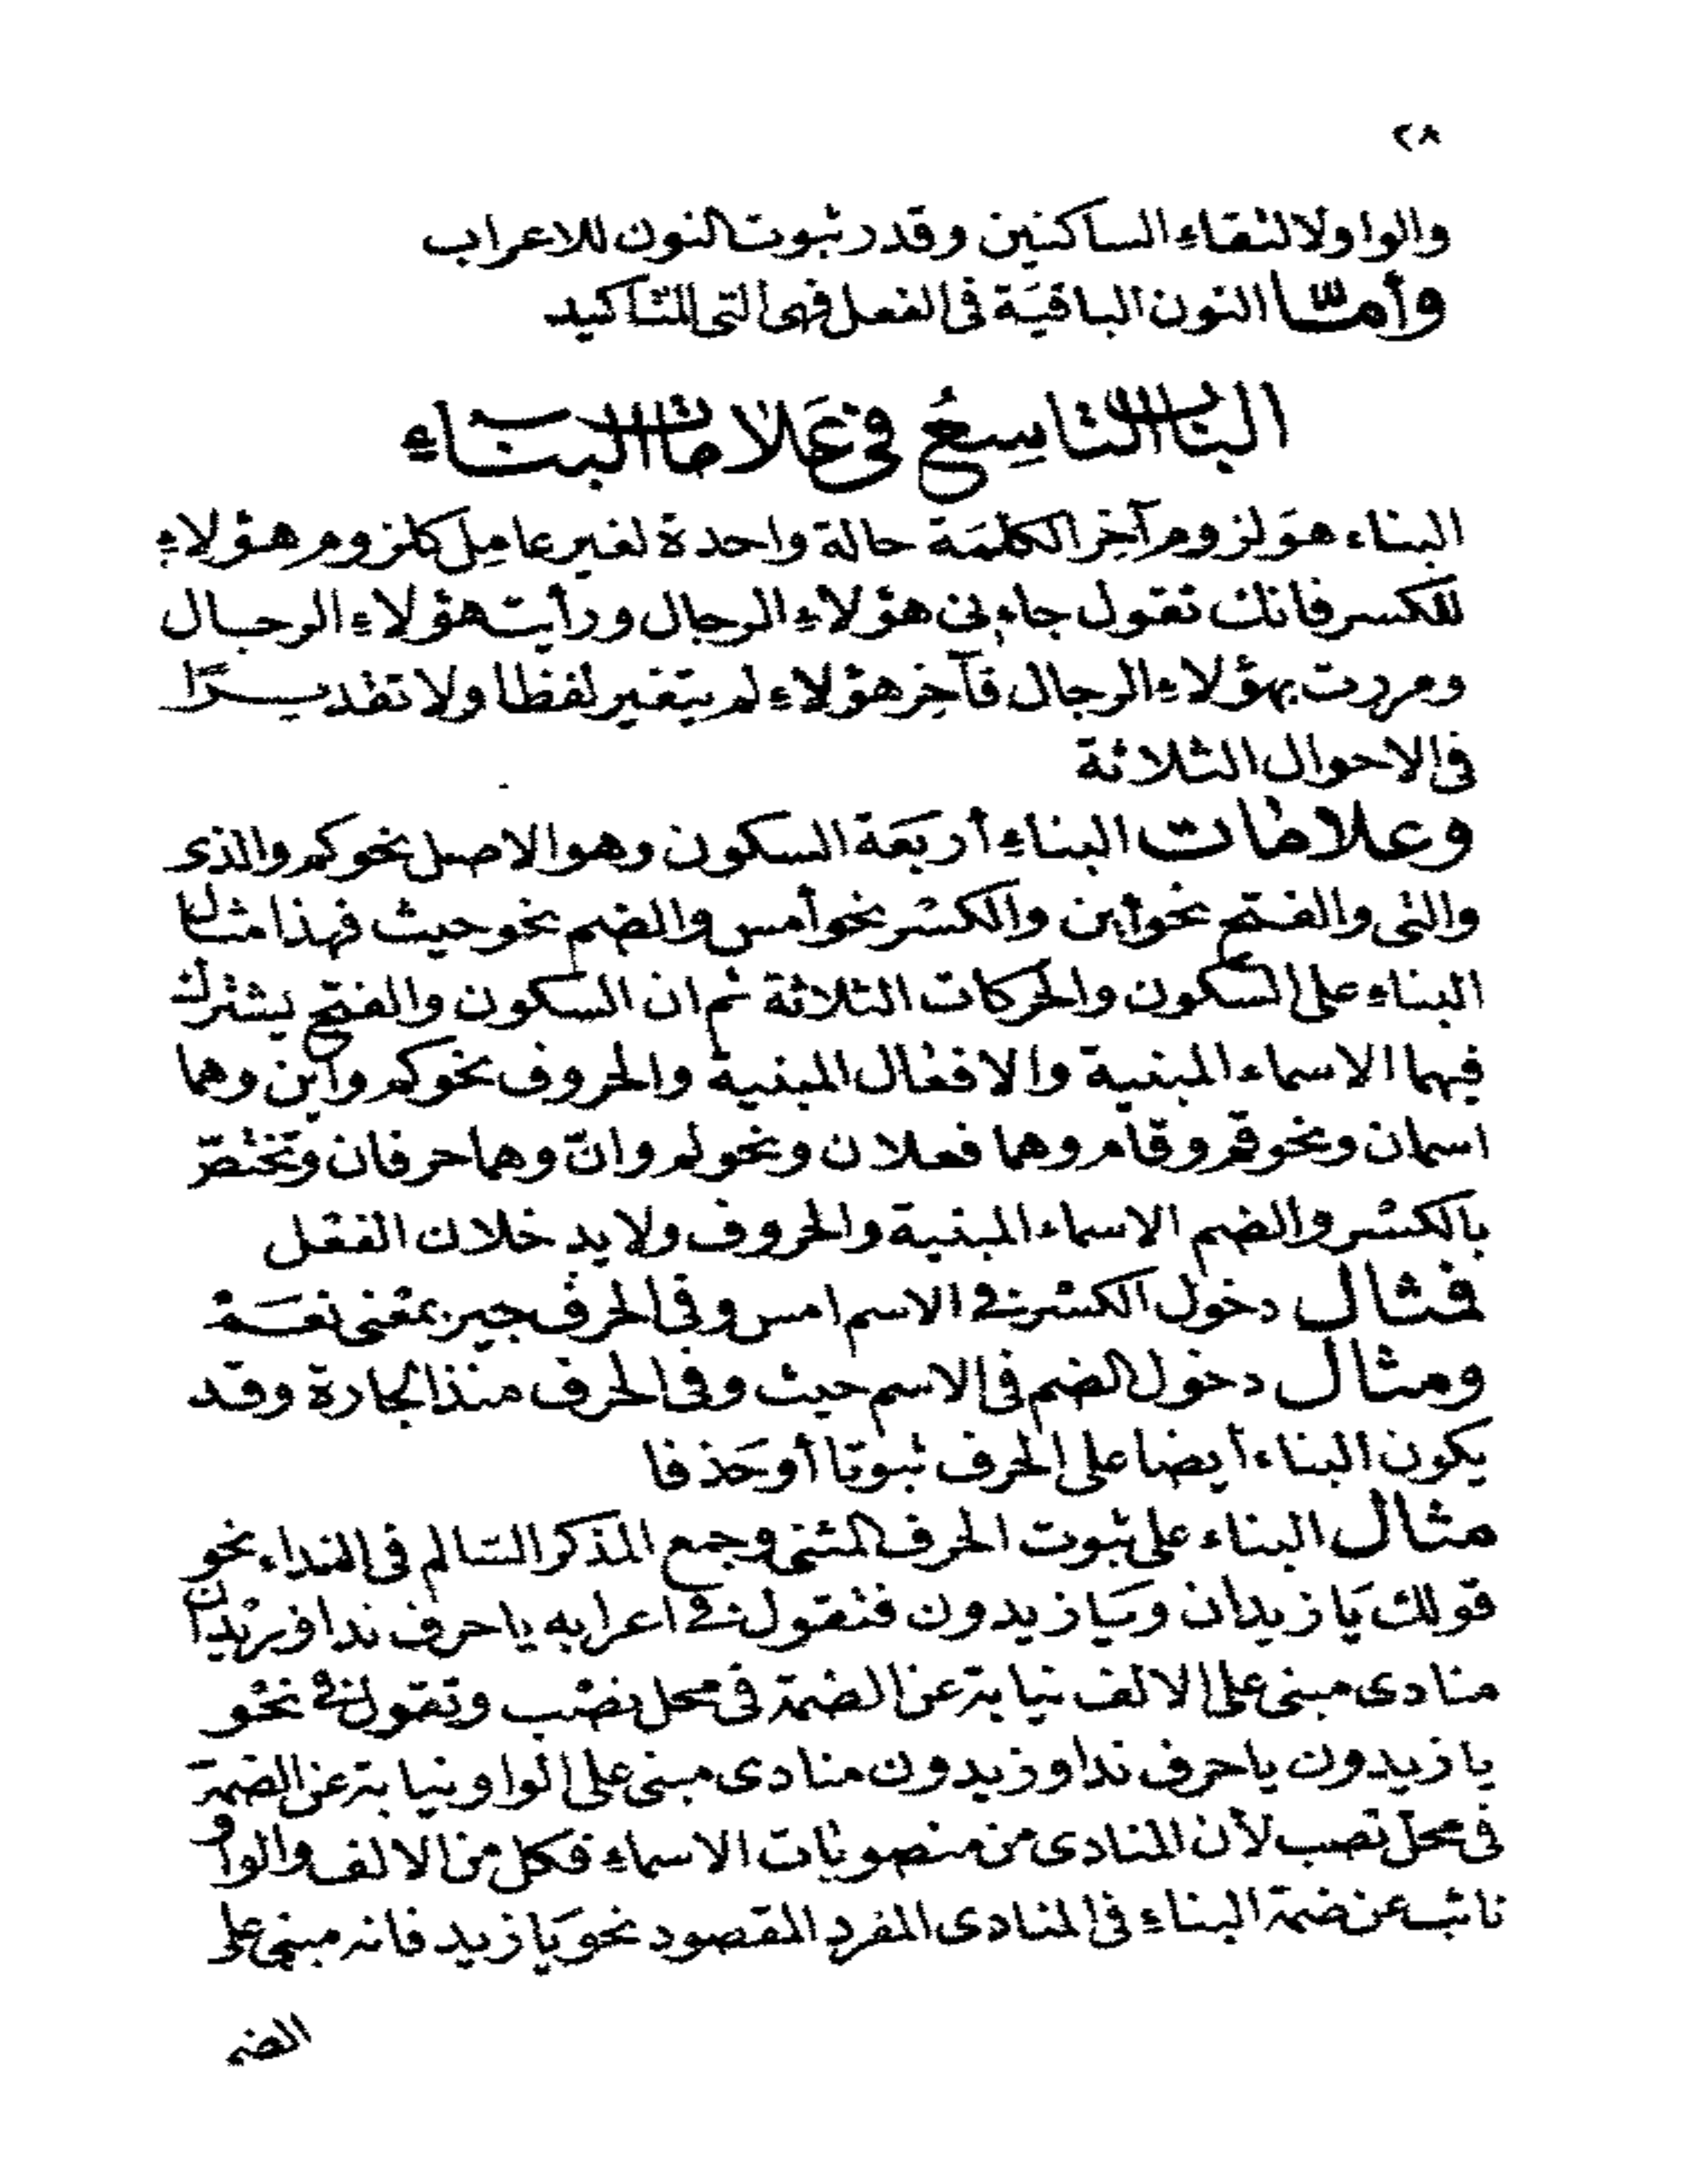 ٢٨
والواو لالتقاء الساكنين وقدر ثبوت النون للاعراب
وأمّا النون الباقيَة في الفعل فهى التى للتاكيد
الباب التاسِعُ في عَلامات البناء
البناء هوَ لزوم آخِر الكلمَة حالة واحدة لغير عامِل كلزوم هؤلاءِ
للكسر فانك تقول جاءنى هؤلاءِ الرجال ورأيت هؤلاءِ الرجال
ومررت بهؤلاءِ الرجال فآخِر هؤلاءِ لم يتغير لفظا ولا تقديرًا
في الاحوال الثلاثة
وعلامات البناءِ أربَعَة السكون وهو الاصل نحو كم والذى
والتى والفتح نحو أين والكسْر نحو أمس والضم نحو حيث فهذا مثال
البناء على السّكون والحركات الثلاثة ثم ان السكون والفتح يشترك
فيهما الاسماء المبنية والافعال المبنية والحروف نحو كم وأين وهما
اسمان ونحو قم وقام وهما فعلان ونحو لم وانّ وهما حرفان وتختصّ
بالكسْر والضم الاسماء المبنية والحروف ولا يدخلان الفعْل
فمثال دخول الكسْر في الاسم امس وفي الحرف جير بمعْنى نعَمْ
ومثال دخول الضم في الاسم حيث وفي الحرف منذ الجارة وقد
يكون البناء أيضا على الحرف ثبوتا أو حَذفا
مثال البناء على ثبوت الحرف المثنى وجمع المذكر السّالم في النداء نحو
قولك يَا زيدان ويَا زيدون فتقول في اعرابه يا حرف ندا وزيْدان
منادى مبنى على الالف نيابة عن الضمة في محل نصْب وتقول في نحْو
يا زيدون يا حرف ندا وزيدون منادى مبنى على الواو نيابة عن الضمة
في محلّ نصب لأن المنادى من منصوبات الاسماءِ فكل من الالف والواو
نائب عن ضمة البناءِ في المنادى المفرد المقصود نحو يَا زيد فانه مبنى على
الضم